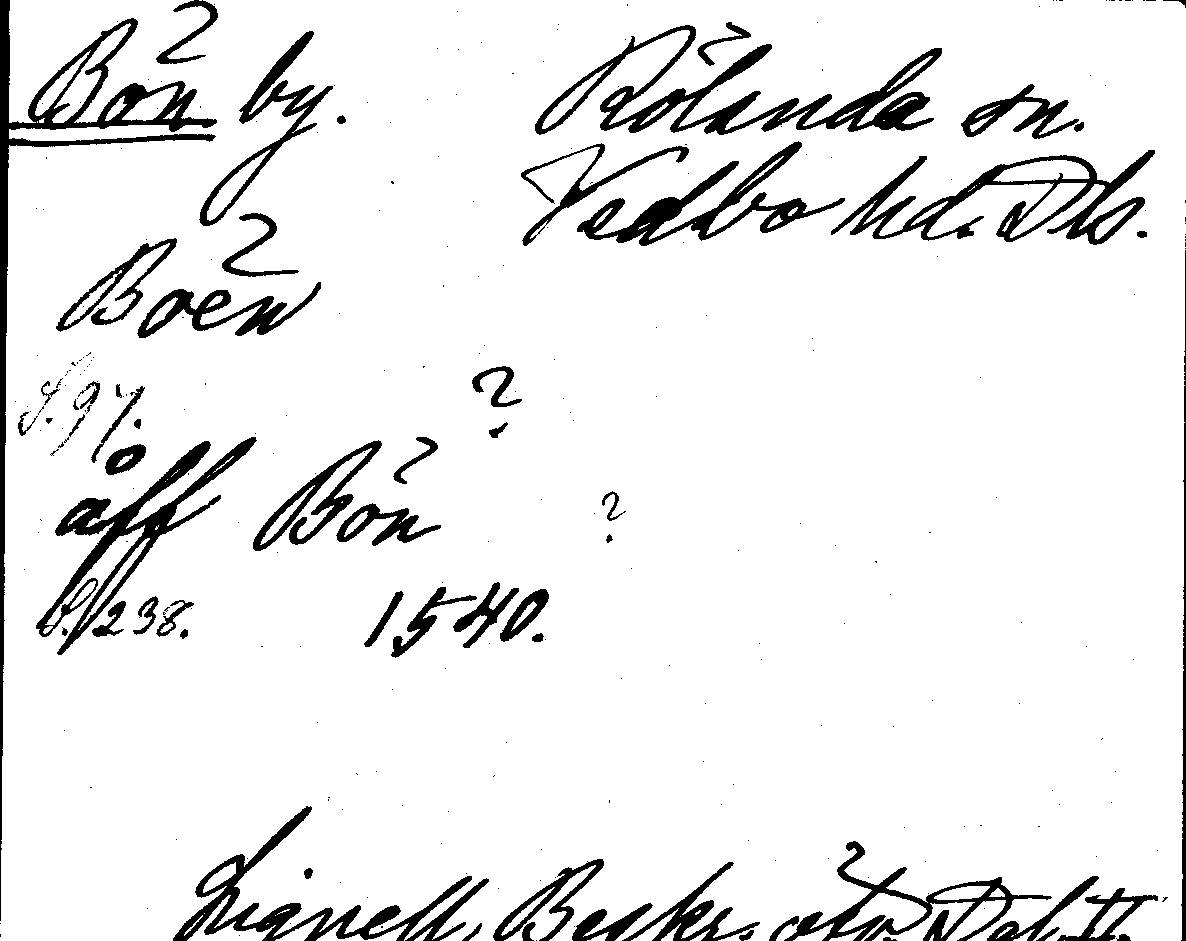 Bön by. Rölanda sn.
Vedbo hd. Dls.
Böen
S. 97. ?
åff Bön ?
S. 238. 1540.
Lignell, Beskr. öfv. Dal. II.